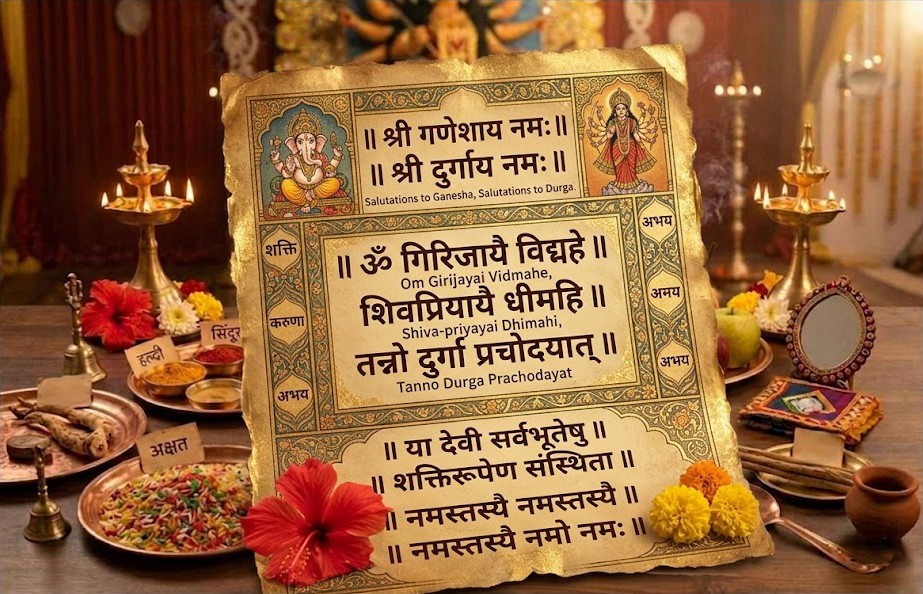 ॥ श्री गणेशाय नमः॥
॥ श्री दुर्गाय नमः॥
Salutations to Ganesha, Salutations to Durga.
शक्ति
करुणा
अभय
॥ ॐ गिरिजायै विद्महे ॥
Om Girijayai Vidmahe,
शिवप्रियायै धीमहि ॥
Shiva-priyayai Dhimahi,
तन्नो दुर्गा प्रचोदयात् ॥
Tanno Durga Prachodayat
अभय
अमय
अभय
॥ या देवी सर्वभूतेषु ॥
॥ शक्तिरूपेण संस्थिता ॥
॥ नमस्तस्यै नमस्तस्यै ॥
॥ नमस्तस्यै नमो नमः ॥
हल्दी
सिंदूर
अक्षत